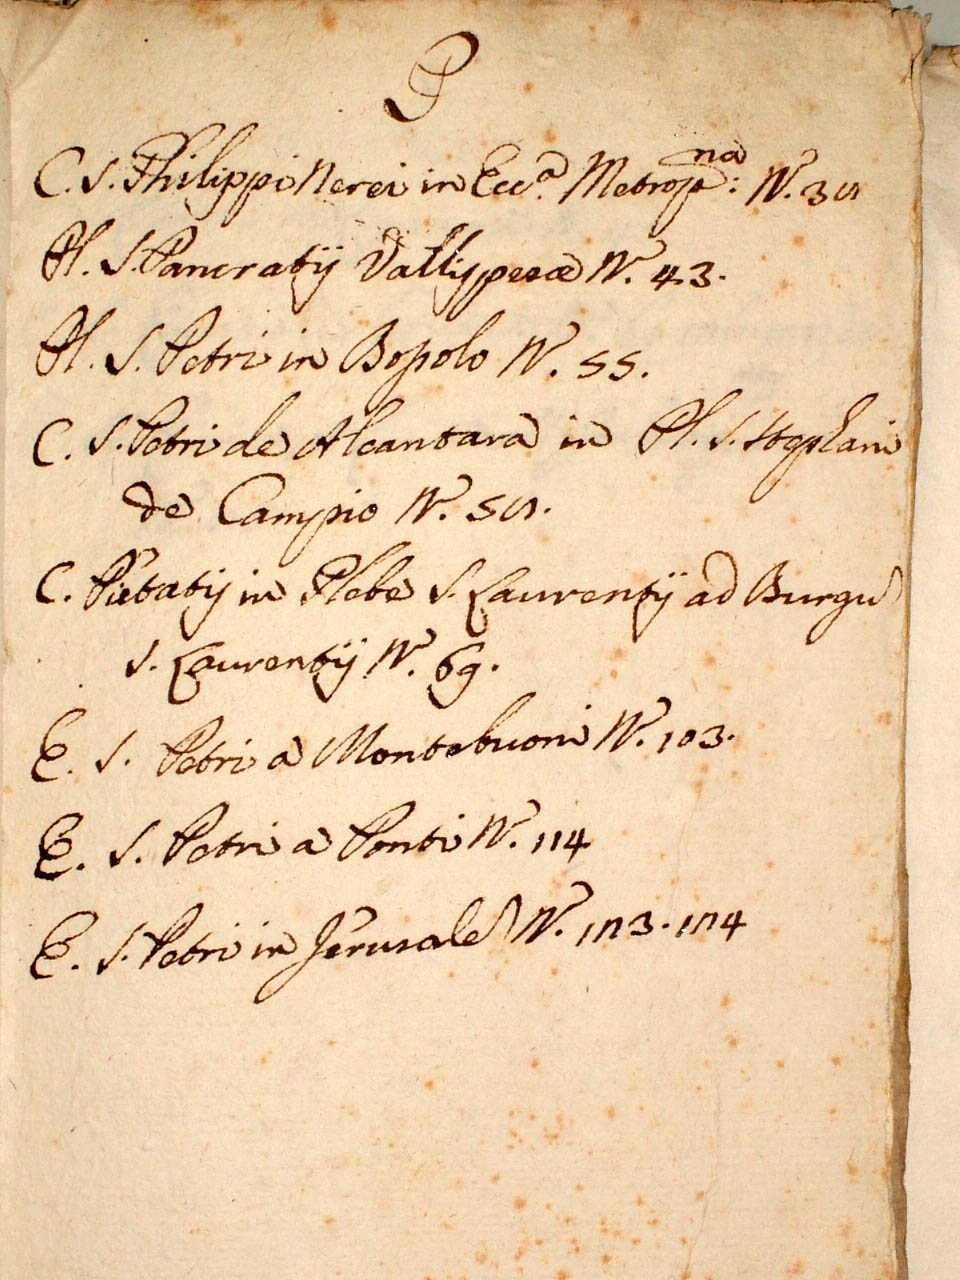 P
C. S. Philippi Nerei in Ecc.a Metrop.na: N. 37
Pl. S. Pancratij Vallispesæ N. 43.
Pl. S. Petri in Bossolo N. 55.
C. S. Petri de Alcantara in Pl. S. Stephani
de Campio N. 57.
C. Pietatij in Plebe S. Laurentij ad Burgū
S. Laurentij N. 69.
E. S. Petri a Montebuoni N. 103.
E. S. Petri a Ponti N. 114
E. S. Petri in Jerusalē N. 173. 174